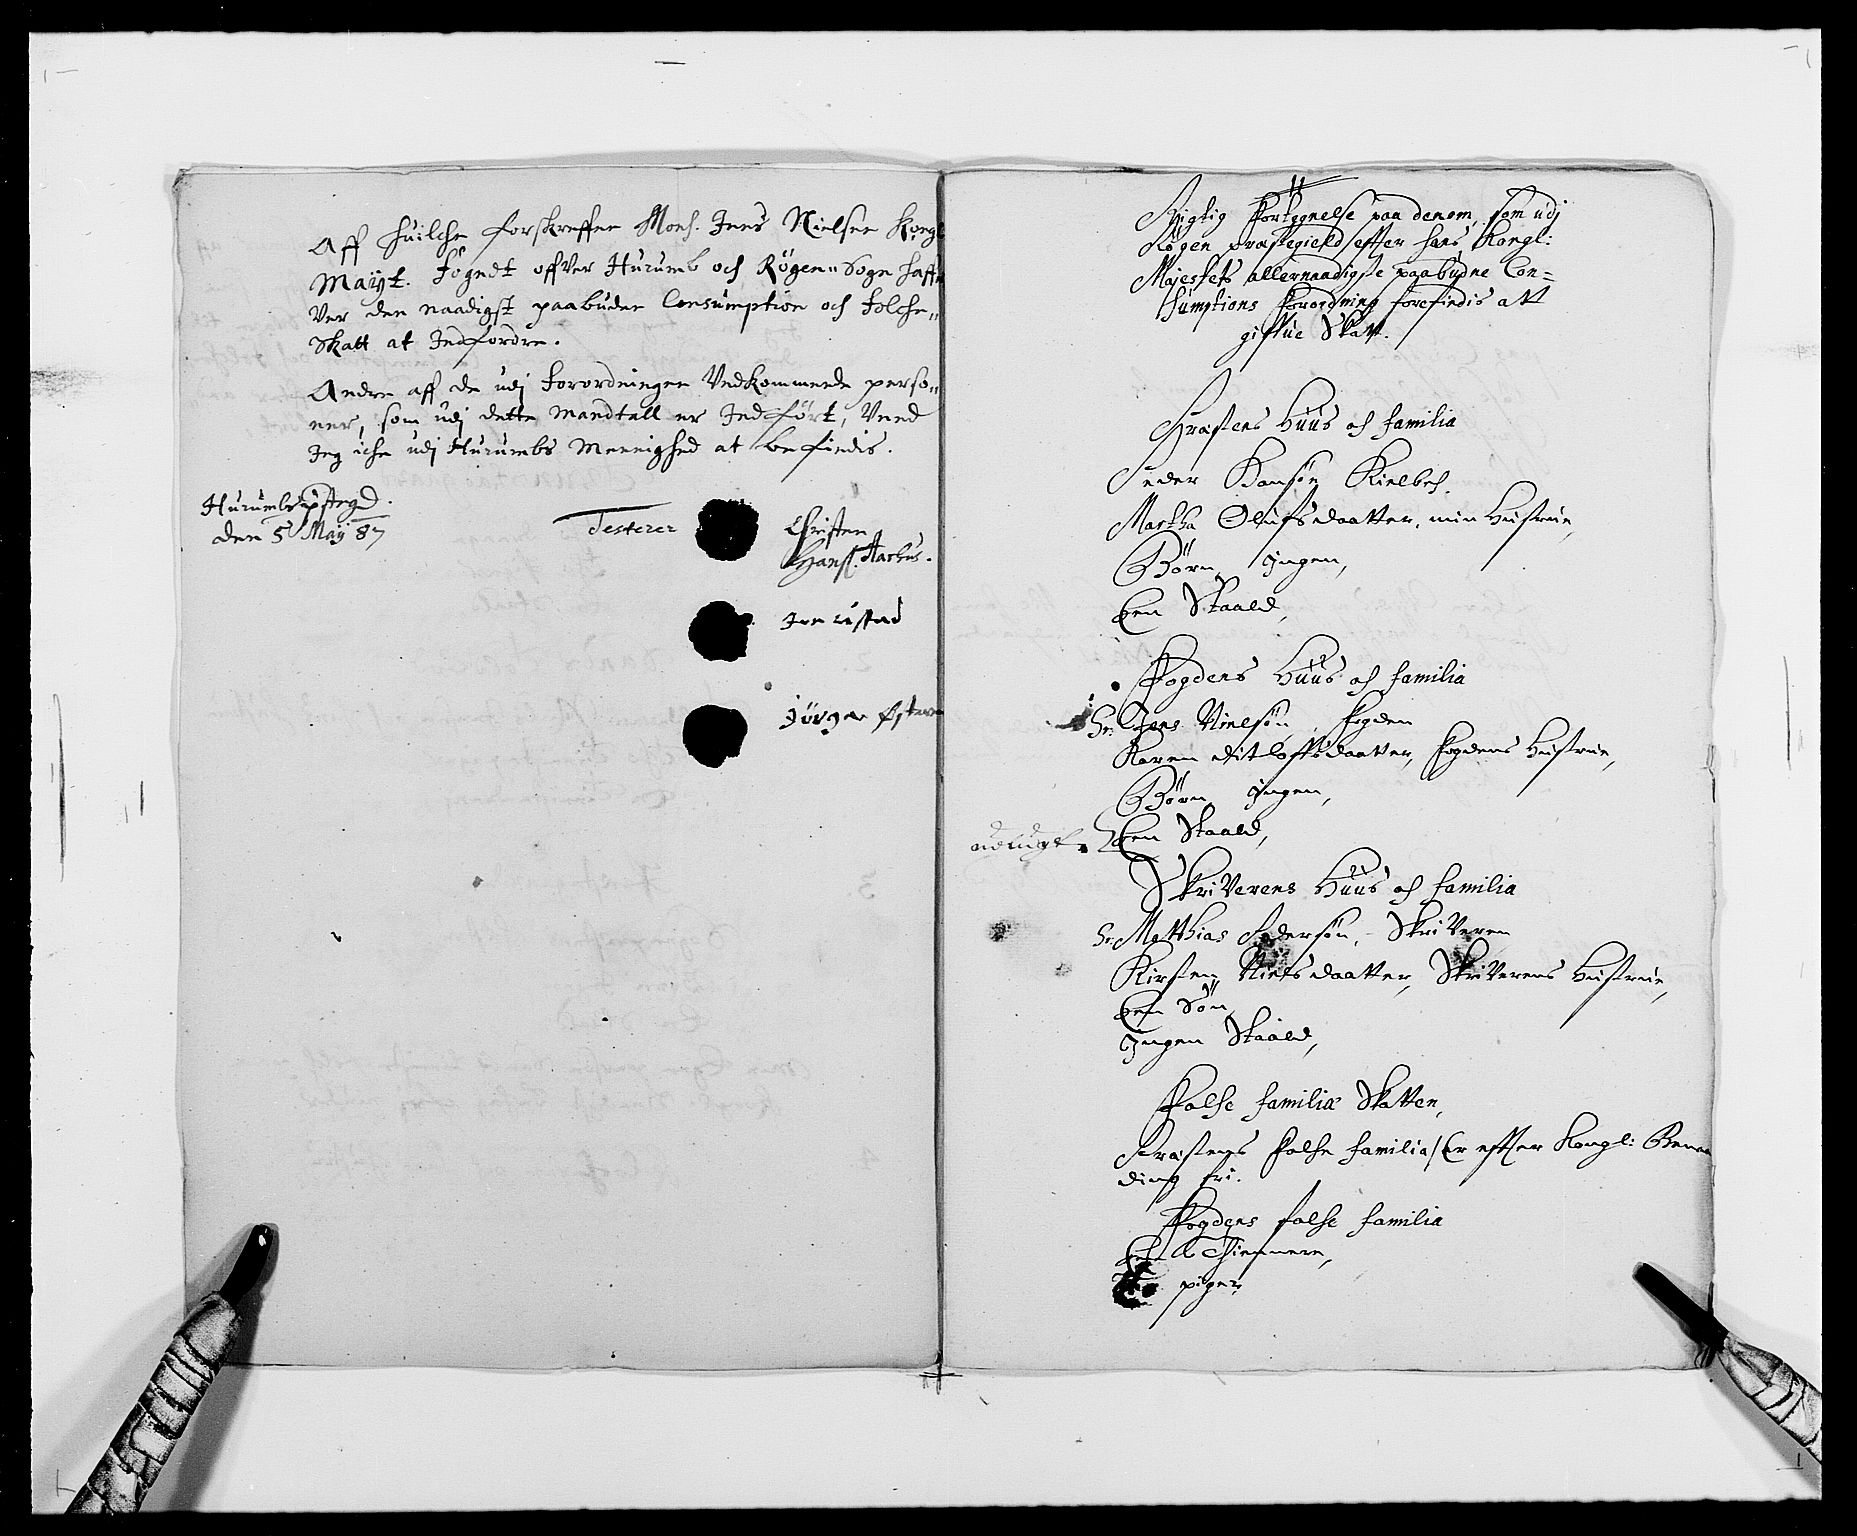 Aff huilche forskreffne Mons. Jens Nielsen Kongl
Mayt. Fogedt offver Hurumb och Røgen Sogn haff
ver den naadigst paabuden Consumption och Folche-
skatt at Indfordre.
Andre aff de udj Forordningen Vedkommende perso-
ner, som udj dette Mandtall er Jndført, Veed
Jeg iche udj Hurumbs Menighed at befindis.
Hurumbs pstegd.
den 5 Maij 87
Testerer
Christen
Hanss. Aarhus.
Iver rustad
Jørgen
Rigtig Fortegnelse paa denem, som udj
Røgen præstegield effter hans Kongl:
Majestets allernaadigste paabudne Con-
sumptions Forordning forefindis att
giffue Skatt.
Præstens Huus och familia
Peder Hansøn Kielbch
Martha Olufsdaatter, min Hustrue,
Børn Ingen,
Een Staald,
Fogdens Huus och familia
Sr. Jens Nielsøn, Fogden
Karen Ditloffsdaatter, Fogdens Hustrue,
Børn Ingen,
udlugt. Een Staald,
Skriverens Huus och familia
Sr. Matthias Pedersøn, Skriveren
Kirsten Nielsdaatter, Skriverens Hustrue,
Een Søn
Ingen Staald,
Folke familiæ Skatten,
Præstens Folke familia Er effter Kongl: Benaa
ding fri.
Fogdens folke familia
Thiennere,
piger